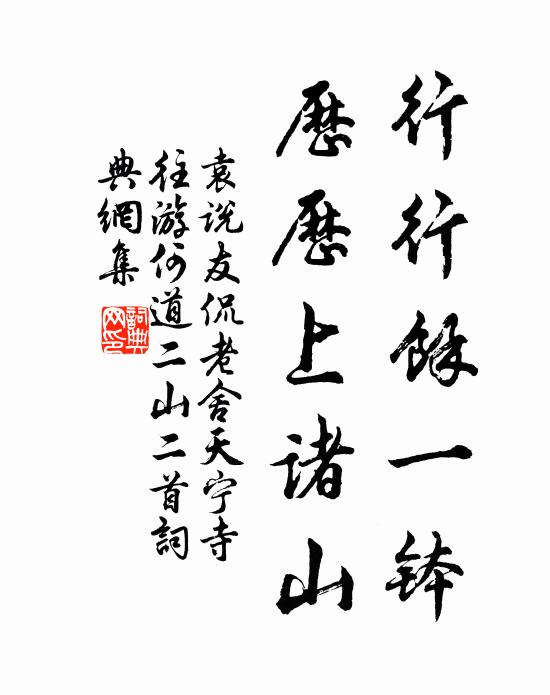 行行餘一钵
歷歷上诸山
袁说友侃老舍天宁寺
往游何道二山二首詞
典網集
詞典网印